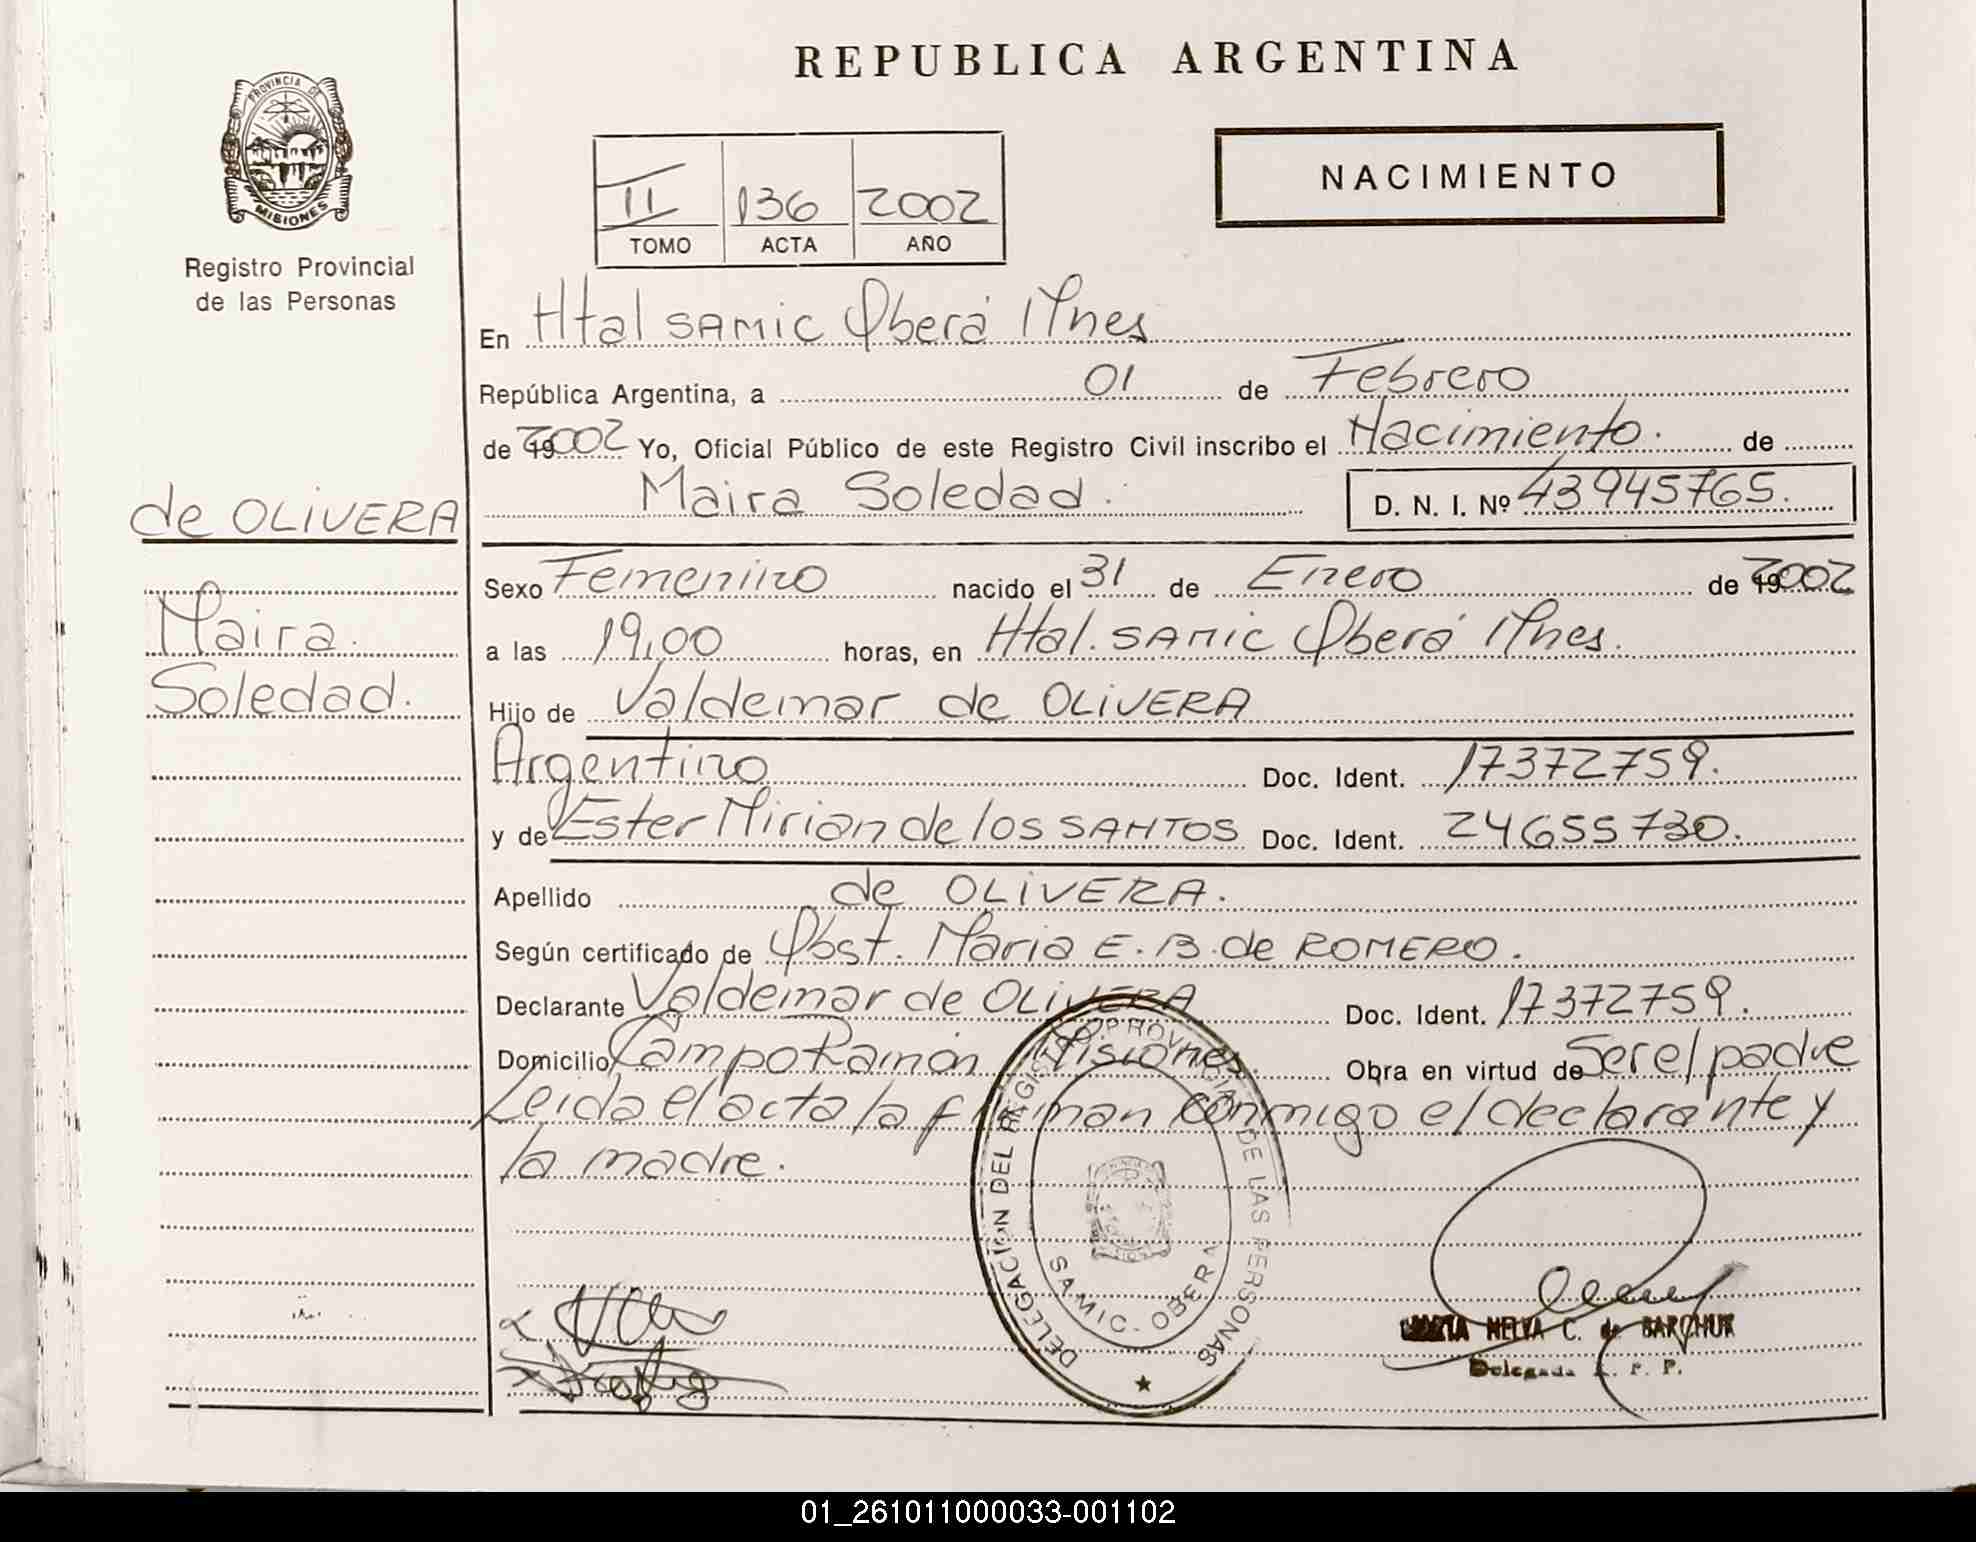 REPUBLICA ARGENTINA
PROVINCIA DE
MISIONES
Registro Provincial
de las Personas
II 136 2002
TOMO ACTA AÑO
NACIMIENTO
En Htal SAMIC Oberá Mnes
República Argentina, a 01 de Febrero
de 2002 Yo, Oficial Público de este Registro Civil inscribo el Nacimiento. de
Maira Soledad. D. N. I. Nº 43945765.
de OLIVERA
Maira.
Soledad.
Sexo Femenino nacido el 31 de Enero de 2002
a las 19,00 horas, en Htal. SAMIC Oberá Mnes.
Hijo de Valdemar de OLIVERA
Argentino Doc. Ident. 17372759.
y de Ester Mirian de los SANTOS Doc. Ident. 24655730.
Apellido de OLIVERA.
Según certificado de Obst. Maria E. B. de ROMERO.
Declarante Valdemar de OLIVERA Doc. Ident. 17372759.
Domicilio Campo Ramón Misiones. Obra en virtud de Ser el padre
Leida el acta la firman conmigo el declarante y
la madre.
DELEGACIÓN DEL REGISTRO PROVINCIAL DE LAS PERSONAS
SAMIC. OBERA
NELVA C. de BARCHUK
Delegada R. P. P.
01_261011000033-001102